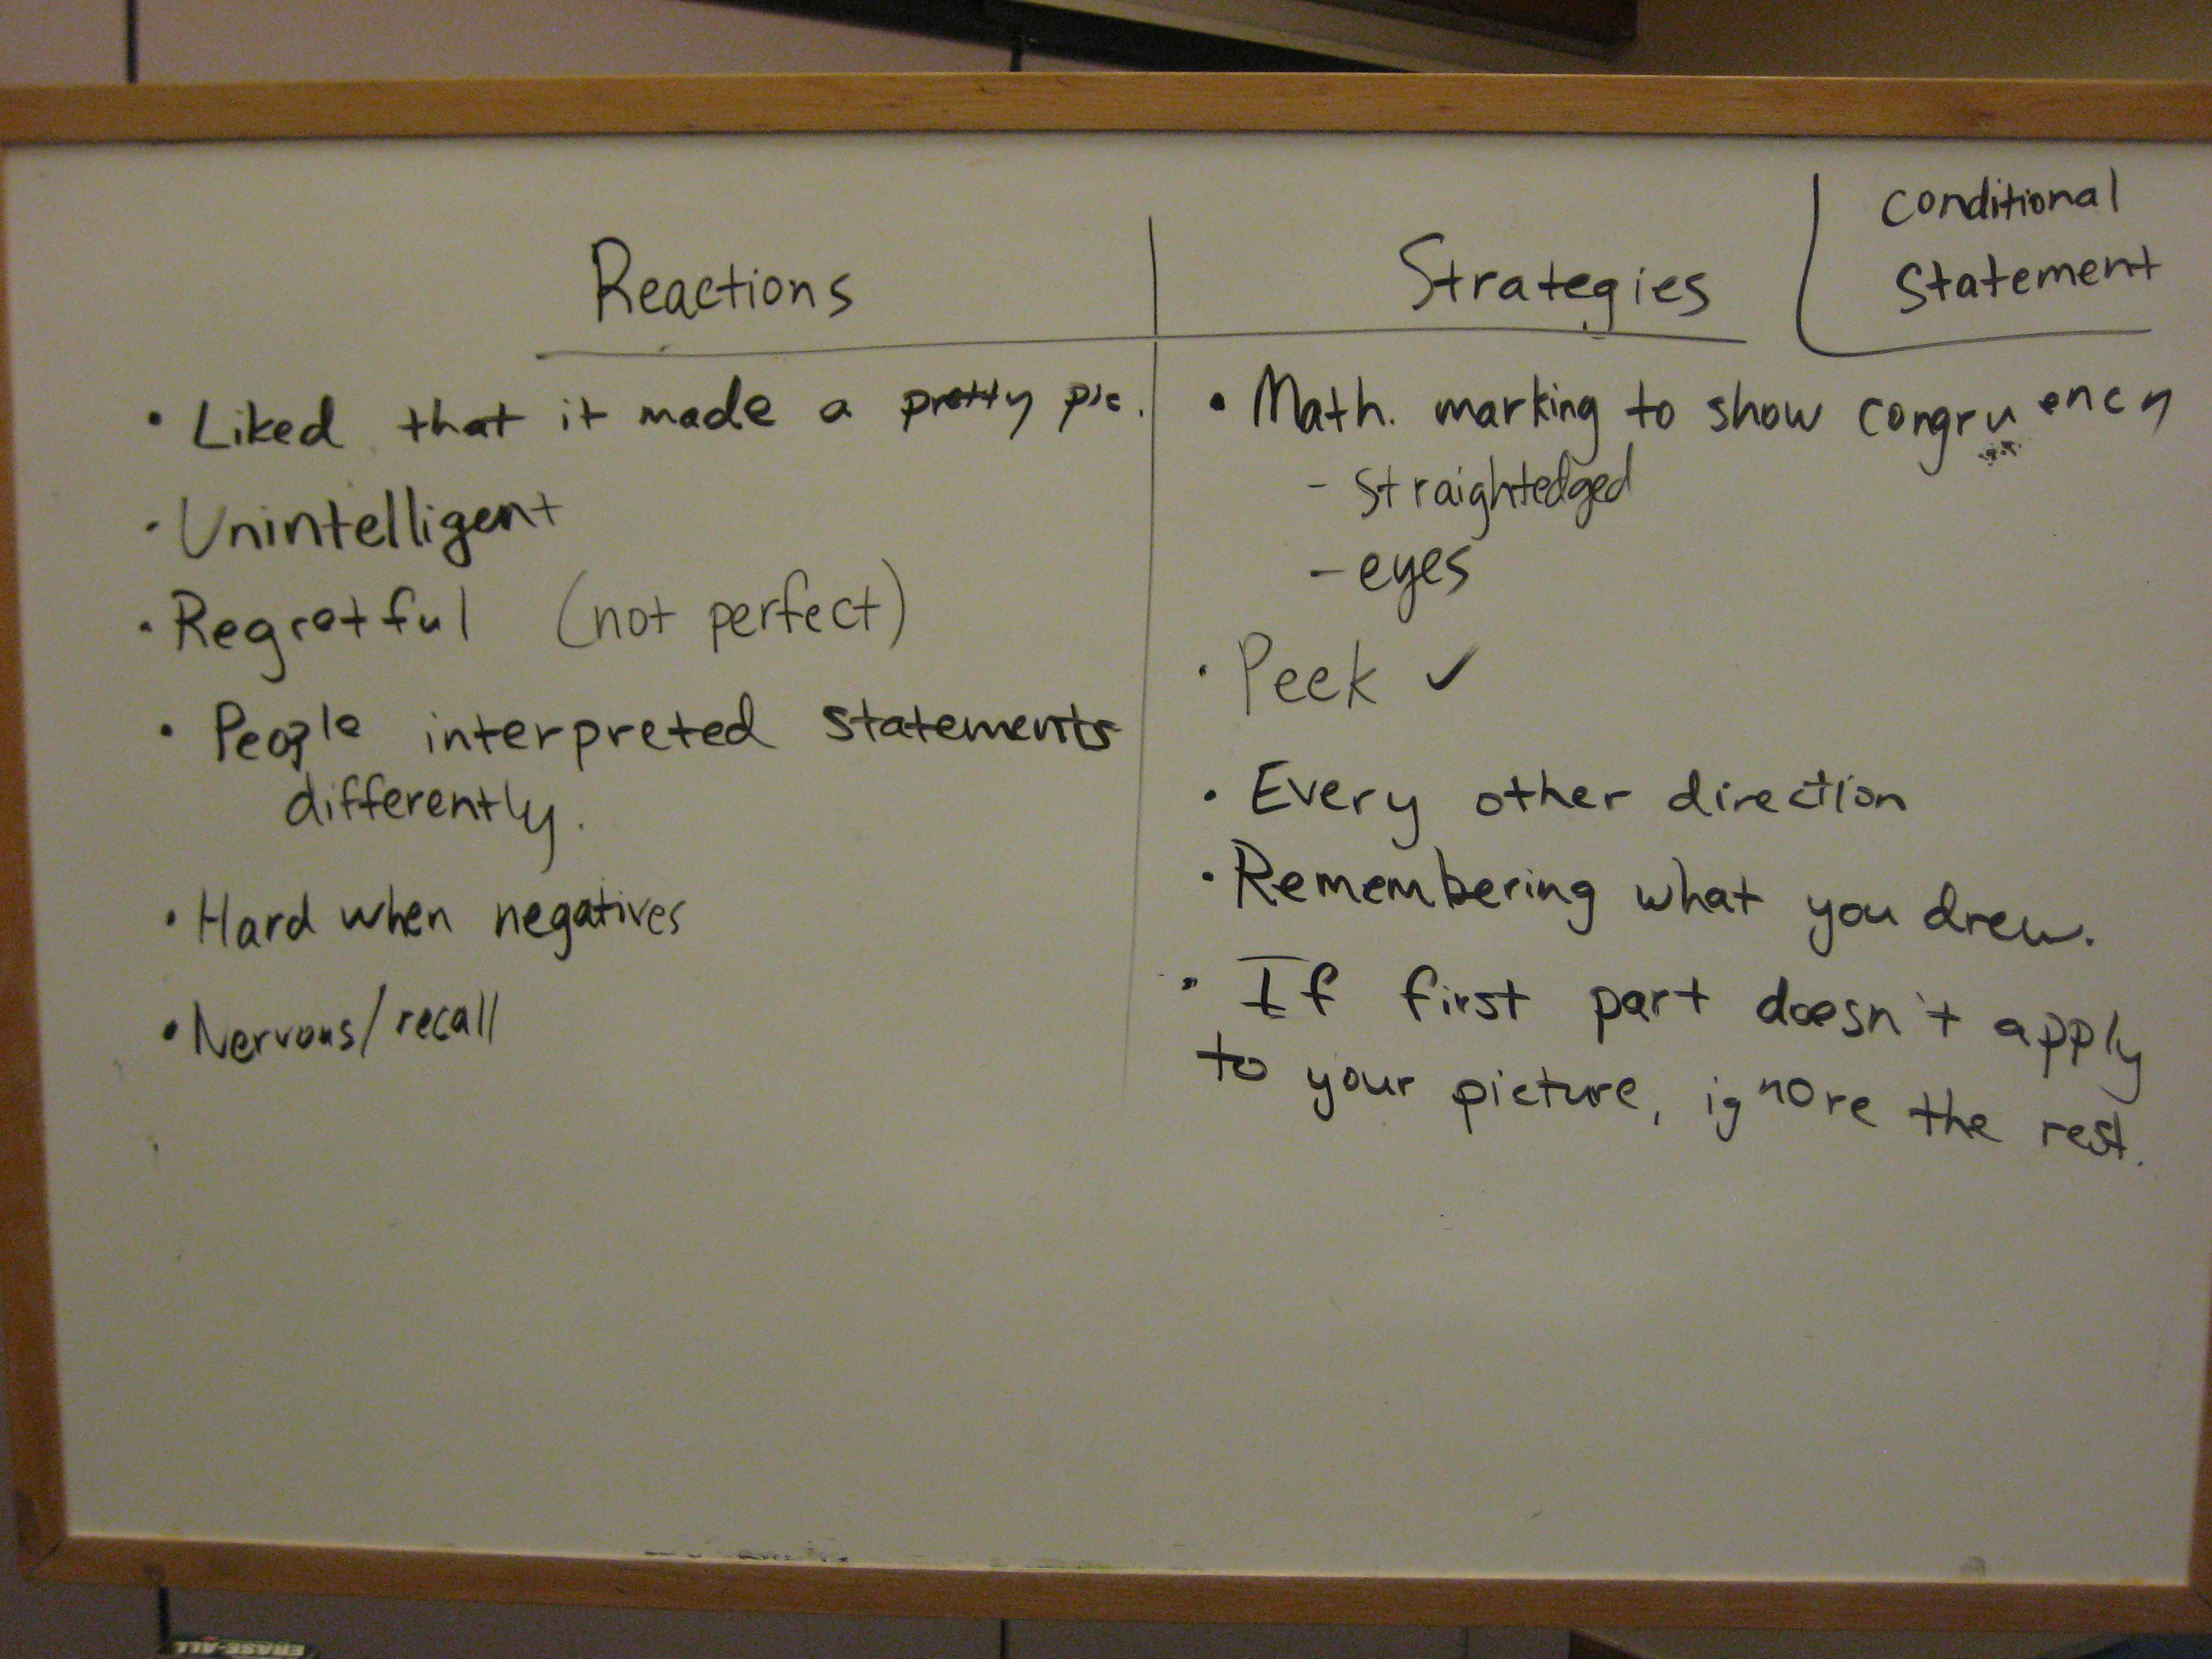 Reactions
• Liked that it made a pretty pic.
• Unintelligent
• Regretful (not perfect)
• People interpreted statements
differently.
• Hard when negatives
• Nervous/recall
Strategies
• Math. marking to show congruency
- straightedged
- eyes
• Peek ✓
• Every other direction
• Remembering what you drew.
• If first part doesn't apply
to your picture, ignore the rest.
conditional
statement
ERASE-ALL